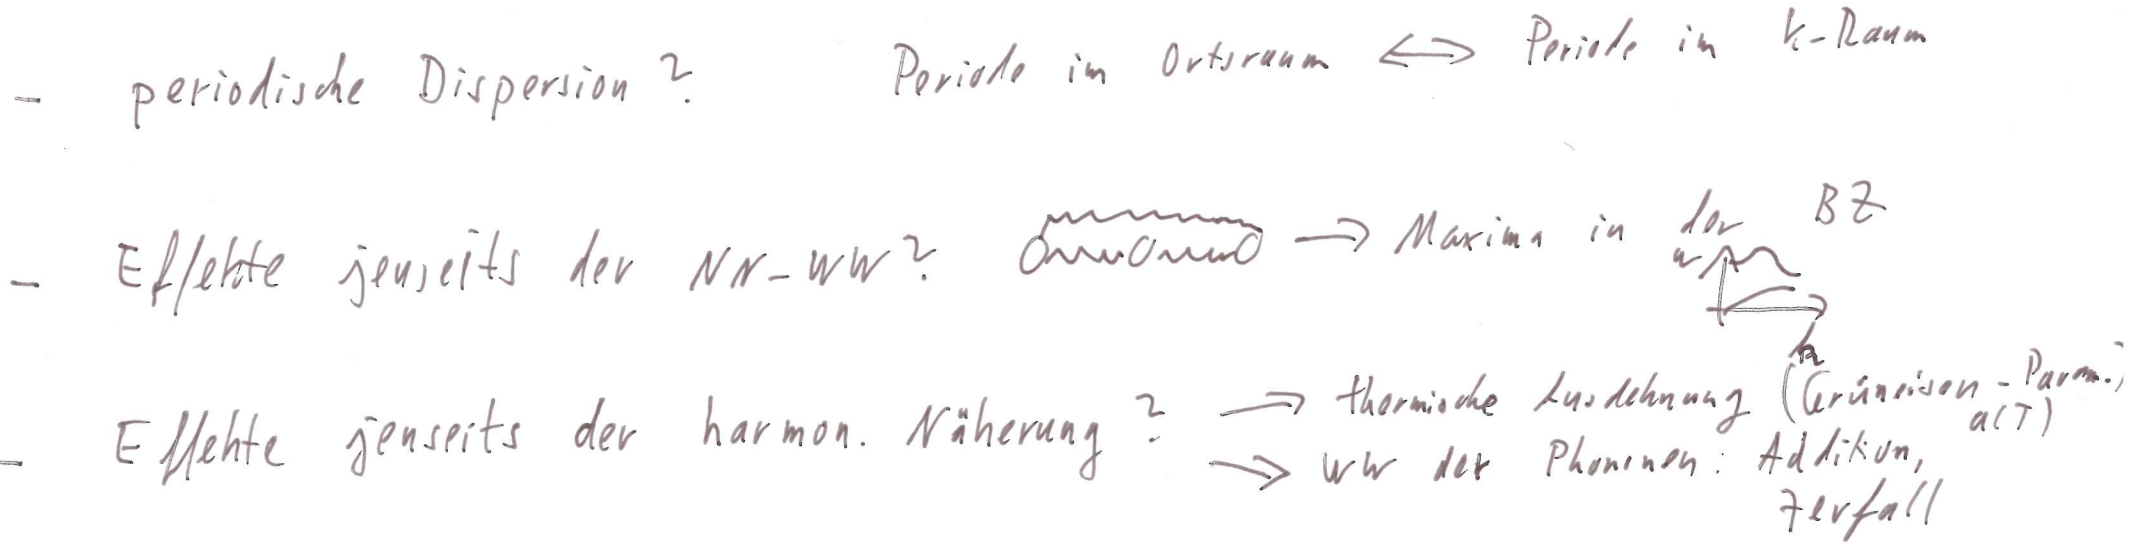 - periodische Dispersion? Periode im Ortsraum ⟺ Periode im k-Raum
- Effekte jenseits der NN-WW? → Maxima in der BZ
ω
k
- Effekte jenseits der harmon. Näherung? → thermische Ausdehnung (Grüneisen-Param.;
a(T)
→ WW der Phononen: Addition,
Zerfall